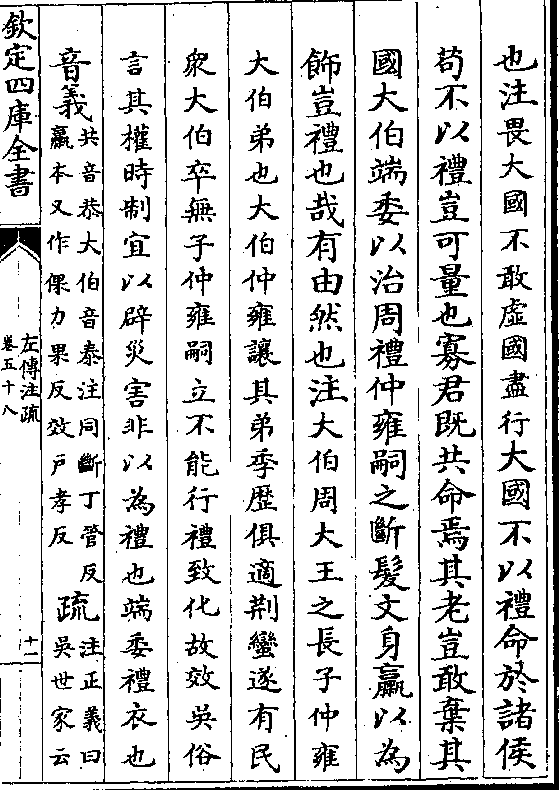 也注畏大國不敢虛國盡行大國不以禮命於諸侯
苟不以禮豈可量也寡君既共命焉其老豈敢棄其
國大伯端委以治周禮仲雍嗣之斷髮文身臝以為
飾豈禮也哉有由然也注大伯周大王之長子仲雍
大伯弟也大伯仲雍讓其弟季歷俱適荆蠻遂有民
衆大伯卒無子仲雍嗣立不能行禮致化故效吳俗
言其權時制宜以辟災害非以為禮也端委禮衣也
音義共音恭大伯音泰注同斷丁管反
臝本又作倮力果反效戸孝反
疏注正義曰
吳世家云
欽定四庫全書
左傳注疏
卷五十八
十一